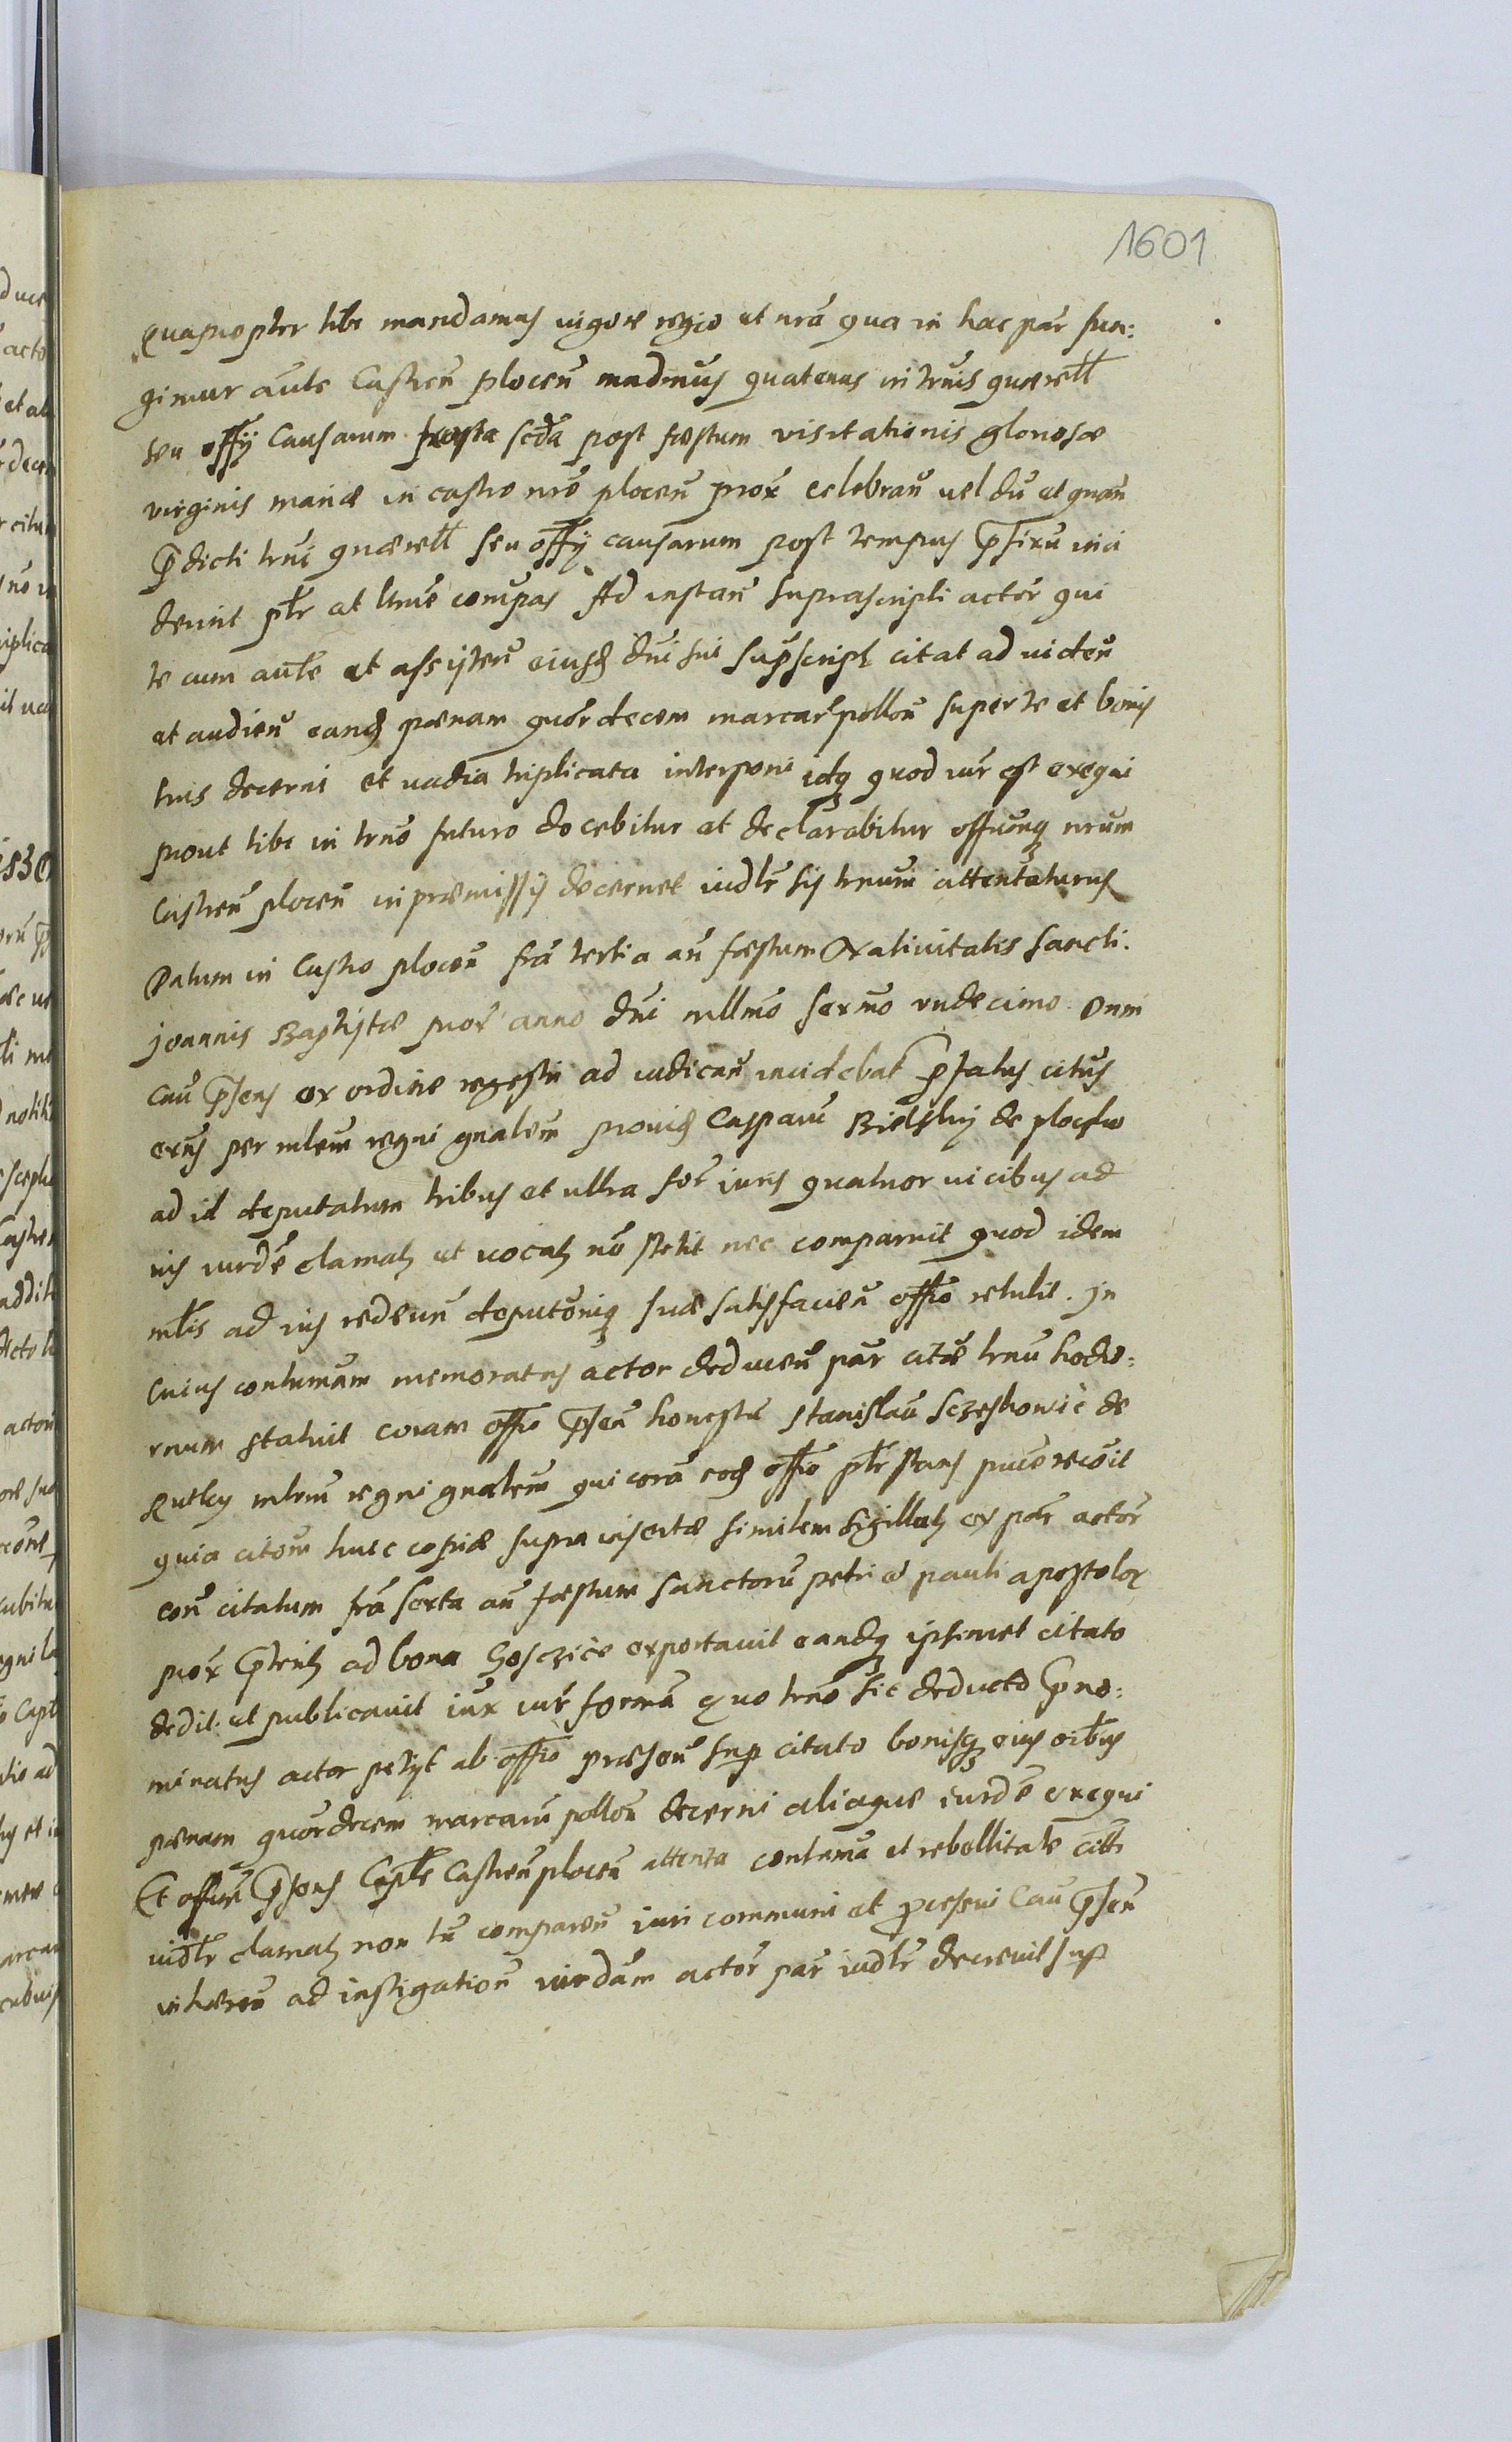 1601
Quapropter tibi mandamus vigore regio et nrã qua in hac par fun:
gimur aute Castreñ ploceñ mãdmus quatenus in trnis querell
seu offÿ causarum feria scda post festum visitationis gloriosæ
virginis mariæ in castro nrõ ploceñ prox celebrañ vel dũ et quañ
p̃dicti trni quærell seu offÿ causarum post tempus p̃fixũ inci
derint ptr et trme compas Ad instañ suprascripti actor qui
te cum aute et assisteñ eiusd dñi sui supscript citat ad videñ
et audieñ eand pænam quor decem marcar polloñ super te et bonis
tuis decerni et vadia triplicata interponi idq quod iur est exequi
prout tibi in trno futuro docebitur et declarabitur offiumq nrum
Castreñ ploceñ in præmissis decernet iudlr sis trnum attentaturus
Datum in Castro ploceñ fra tertia añ fæstum Natiuitatis Sancti
joannis Baptistæ prox anno dñi mllmo sexmo vndecimo. Dum
cau p̃sens ex ordine regestri ad iudicañ incidebat p̃fatus citus
extus per mlem regni gnalem prouid Casparũ Bielsky de plocko
ad id deputatum tribus et ultra for iuris quatuor vicibus ad
ius iurdẽ clamatz et vocatz nõ stetit nec comparuit quod idem
mlis ad ius redeuñ deputoniq suæ satisfacieñ offio retulit. In
cuius contumam memoratus actor deduceñ par citæ trnũ hodie:
rnum statuit coram offio p̃señ honestũ Stanislaũ Sczeskowic de
Rutky mlrem regni gnalem qui corã eod offio ptr stans pure recoit
quia citom huic copiæ supra insertæ similem sigillatz ex par actor
coñ citatum fra sexta añ fæstum Sanctorũ petri et pauli apostolor
prox p̃tertz ad bona Gosczice exportauit eandq ipsimet citato
dedit et publicauit iux iur formã Quo trno sic deducto p̃no:
minatus actor petyt ab offio præseñ sup citato bonisq eius oibus
pænam quordecem marcarũ polloñ decerni aliaque iurdẽ exequi
Et offium p̃sens Caple Castreñ ploceñ attenta contuma et rebellitate citti
iudlr clamatz non tñ compareñ iuri communi et p̃cessui cau p̃señ
inhæreñ ad instigationẽ iurdãm actor par iudlr decreuit sup